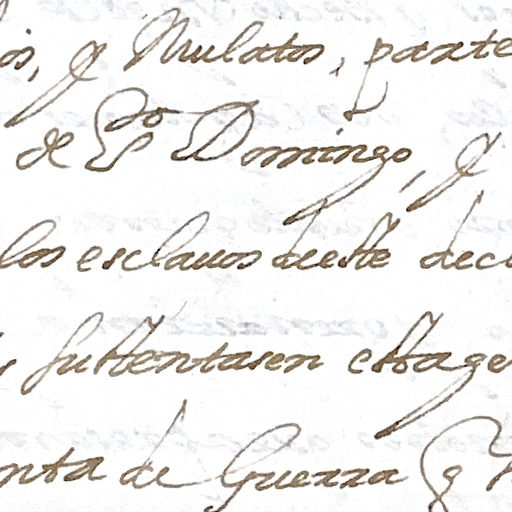 os, y Mulatos, parte
de S.to Domingo, y
los esclauos deste dec
sustentasen esta ge
nta de Guerra q